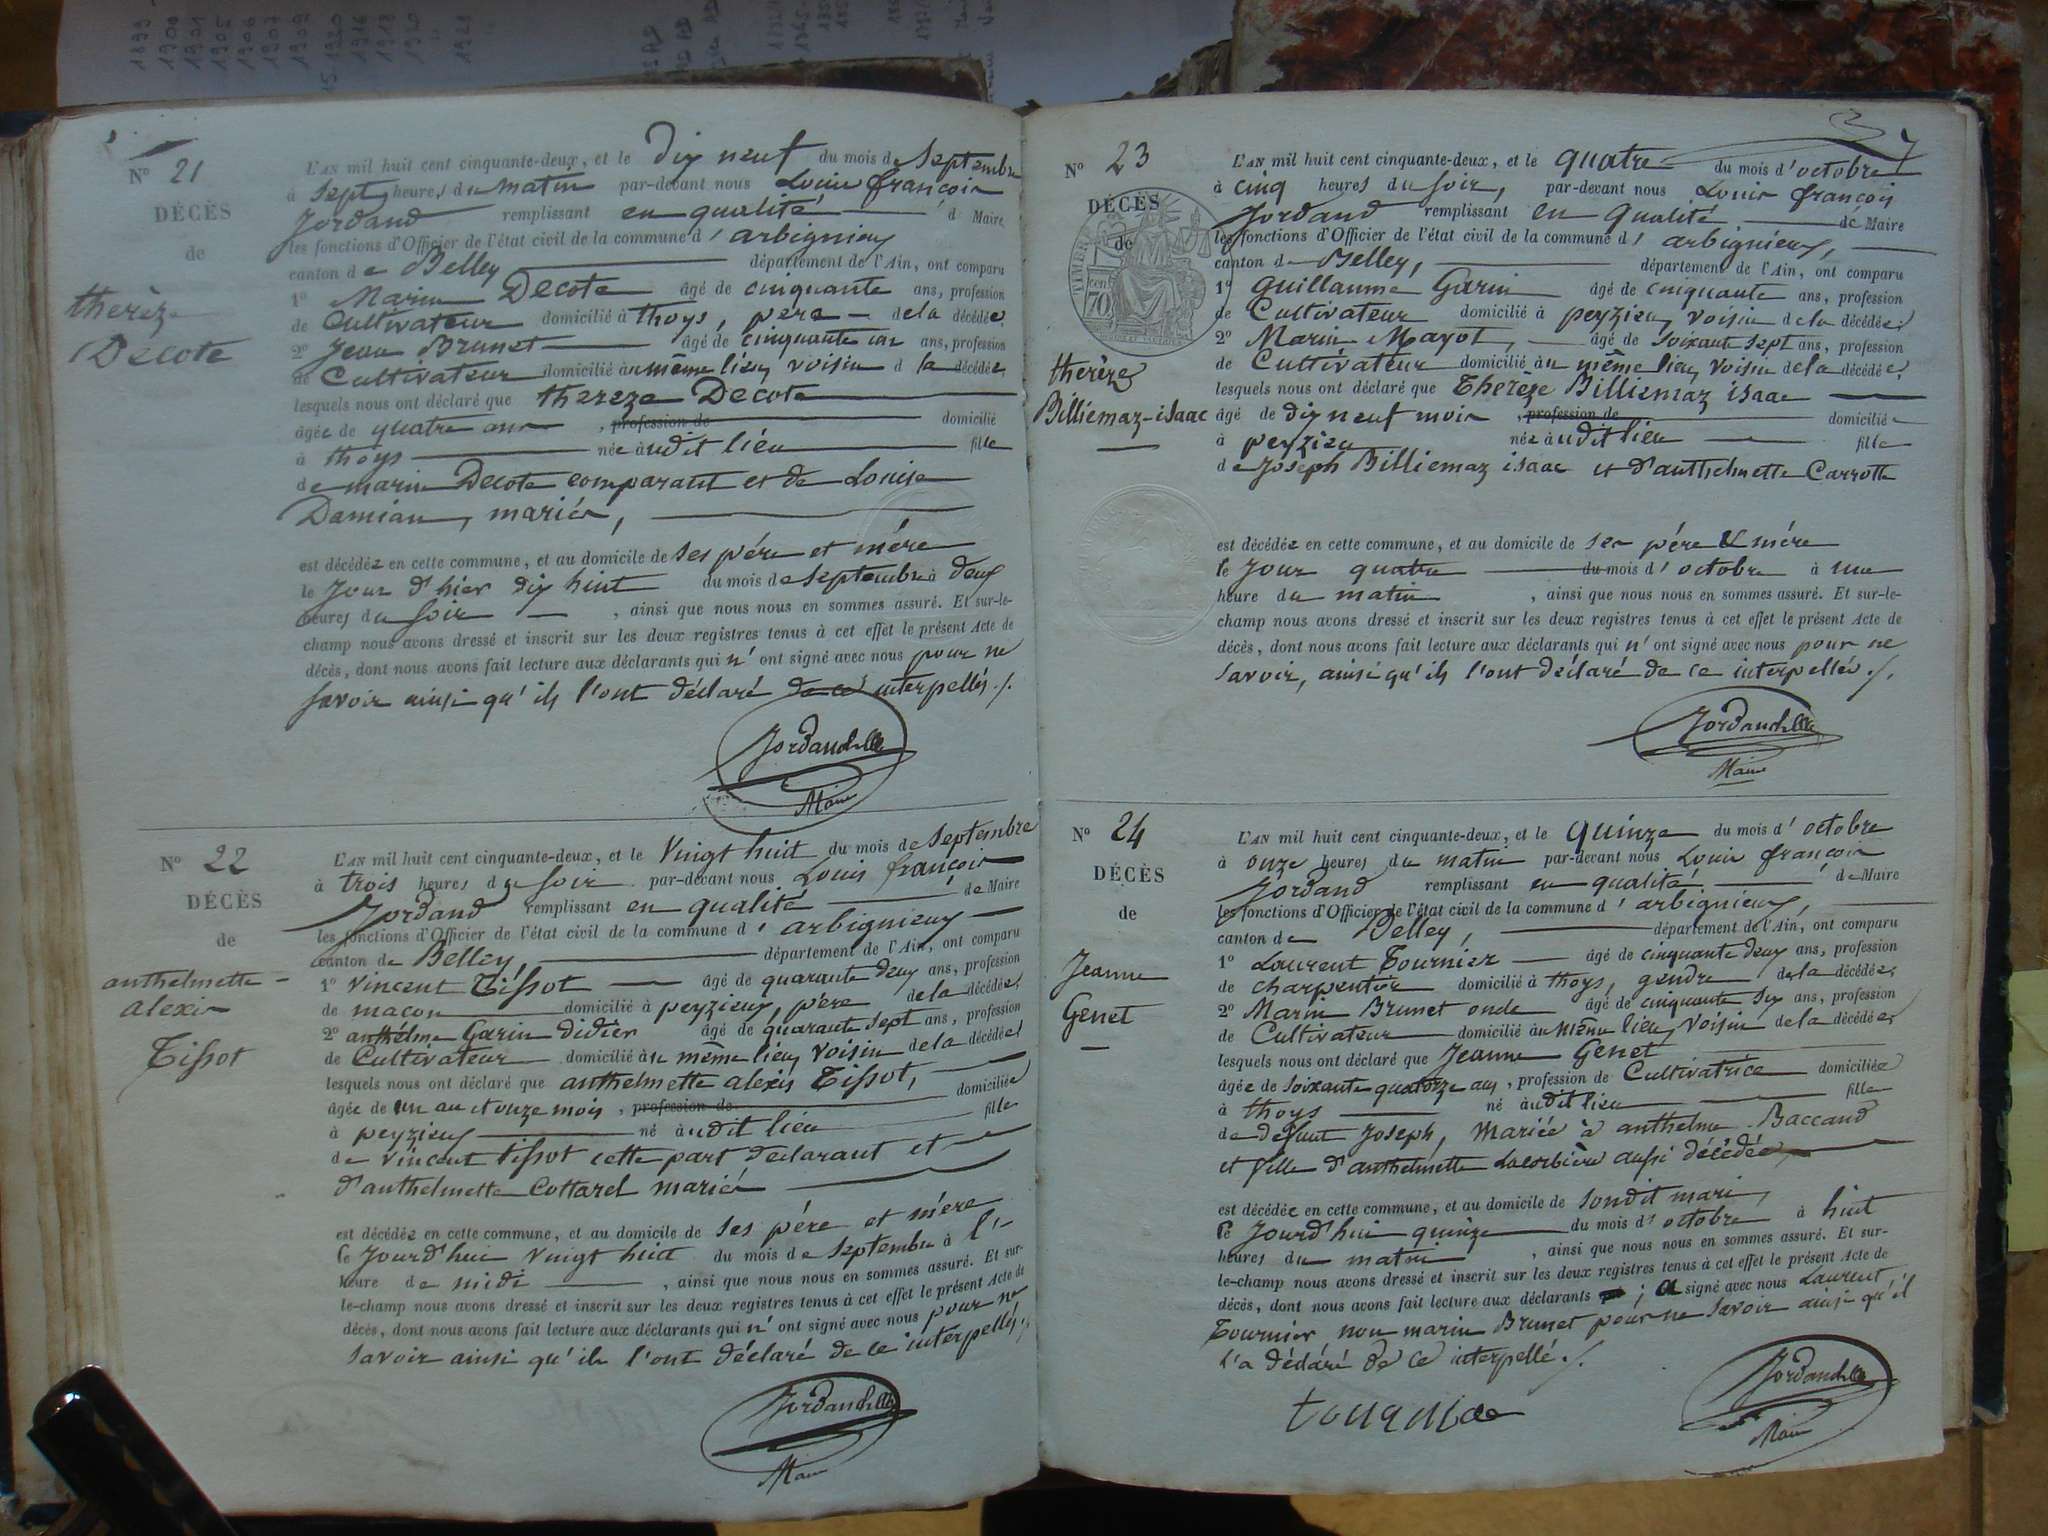 N° 21
DÉCÈS
de
therèze
Decote
L'AN mil huit cent cinquante-deux, et le dix neuf du mois de Septembre
à Sept heures du matin par-devant nous Louis françois
Jordand remplissant en qualité d Maire
les fonctions d'Officier de l'état civil de la commune d' arbignieux
canton de Belley département de l'Ain, ont comparu
1° Marin Decote âgé de cinquante ans, profession
de Cultivateur domicilié à thoys, père de la décédée
2° Jean Brunet âgé de cinquante un ans, profession
de Cultivateur domicilié au même lieu, voisin d la décédée,
lesquels nous ont déclaré que thereze Decote
âgée de quatre ans , profession de domicilié
à thoys née àudit lieu fille
de marin Decote comparant et de Louise
Damian, mariés,
est décédée en cette commune, et au domicile de ses père et mère
le Jour d'hier dix huit du mois de Septembre à deux
heures du soir , ainsi que nous nous en sommes assuré. Et sur-le-
champ nous avons dressé et inscrit sur les deux registres tenus à cet effet le présent Acte de
décès, dont nous avons fait lecture aux déclarants qui n' ont signé avec nous pour ne
savoir ainsi qu'ils l'ont déclaré de ce interpellés ./.
Maire
N° 22
DÉCÈS
de
anthelmette
alexis
Tissot
L'AN mil huit cent cinquante-deux, et le Vingt huit du mois de Septembre
à trois heures du soir par-devant nous Louis françois
Jordand remplissant en qualité de Maire
les fonctions d'Officier de l'état civil de la commune d' arbignieux
canton de Belley, département de l'Ain, ont comparu
1° Vincent Tissot âgé de quarante deux ans, profession
de macon domicilié à peyzieux, père de la décédée,
2° anthelme Garin didier âgé de quarante sept ans, profession
de Cultivateur domicilié au même lieu, voisin de la décédée
lesquels nous ont déclaré que anthelmette alexis Tissot,
âgée de un an et onze mois , profession de domiciliée
à peyzieux né àudit lieu fille
de Vincent tissot cette part declarant et
d'anthelmette Cottarel mariés
est décédée en cette commune, et au domicile de ses père et mère
le Jourd'hui Vingt huit du mois de septembre à l'
heure de midi , ainsi que nous nous en sommes assuré. Et sur-
le-champ nous avons dressé et inscrit sur les deux registres tenus à cet effet le présent Acte de
décès, dont nous avons fait lecture aux déclarants qui n' ont signé avec nous pour ne
savoir ainsi qu'ils l'ont déclaré de ce interpellés ./.
Maire
N° 23
DÉCÈS
de
TIMBRE
70 cen
therèze
Billiemaz-isaac
L'AN mil huit cent cinquante-deux, et le quatre du mois d'octobre
à cinq heures du soir, par-devant nous Louis françois
Jordand remplissant en qualité de Maire
les fonctions d'Officier de l'état civil de la commune d' arbignieux,
canton de Belley, département de l'Ain, ont comparu
1° Guillaume Garin âgé de cinquante ans, profession
de Cultivateur domicilié à peyzieu, voisin de la décédée.
2° Marin Mayot, âgé de soixante sept ans, profession
de Cultivateur domicilié au même lieu, voisin de la décédée,
lesquels nous ont déclaré que Therèze Billiemaz isaac
âgé de dix neuf mois , profession de domicilié
à peyzieu née àudit lieu fille
de Joseph Billiemaz isaac et d'anthelmette Carrotte
est décédée en cette commune, et au domicile de ses père & mère
le Jour quatre du mois d' octobre à une
heure du matin , ainsi que nous nous en sommes assuré. Et sur-le-
champ nous avons dressé et inscrit sur les deux registres tenus à cet effet le présent Acte de
décès, dont nous avons fait lecture aux déclarants qui n' ont signé avec nous pour ne
savoir, ainsi qu'ils l'ont déclaré de ce interpellés ./.
Maire
N° 24
DÉCÈS
de
Jeanne
Genet
L'AN mil huit cent cinquante-deux, et le quinze du mois d' octobre
à onze heures du matin par-devant nous Louis françois
Jordand remplissant en qualité de Maire
les fonctions d'Officier de l'état civil de la commune d' arbignieux,
canton de Belley, département de l'Ain, ont comparu
1° Laurent Tournier âgé de cinquante deux ans, profession
de charpentier domicilié à thoys, gendre de la décédée
2° Marin Brunet onde âgé de cinquante six ans, profession
de Cultivateur domicilié au même lieu, voisin de la décédée,
lesquels nous ont déclaré que Jeanne Genet
âgée de soixante quatorze ans , profession de Cultivatrice domiciliée
à thoys né àudit lieu fille
de defunt Joseph, Mariée à anthelme Baccand
et fille d'anthelmette Lacorbière aussi décédée,
est décédée en cette commune, et au domicile de sondit mari,
le Jourd'hui quinze du mois d' octobre à huit
heures du matin , ainsi que nous nous en sommes assuré. Et sur-
le-champ nous avons dressé et inscrit sur les deux registres tenus à cet effet le présent Acte de
décès, dont nous avons fait lecture aux déclarants ; a signé avec nous Laurent
Tournier non marin Brunet pour ne savoir ainsi qu'il
l'a déclaré de ce interpellé ./.
Maire